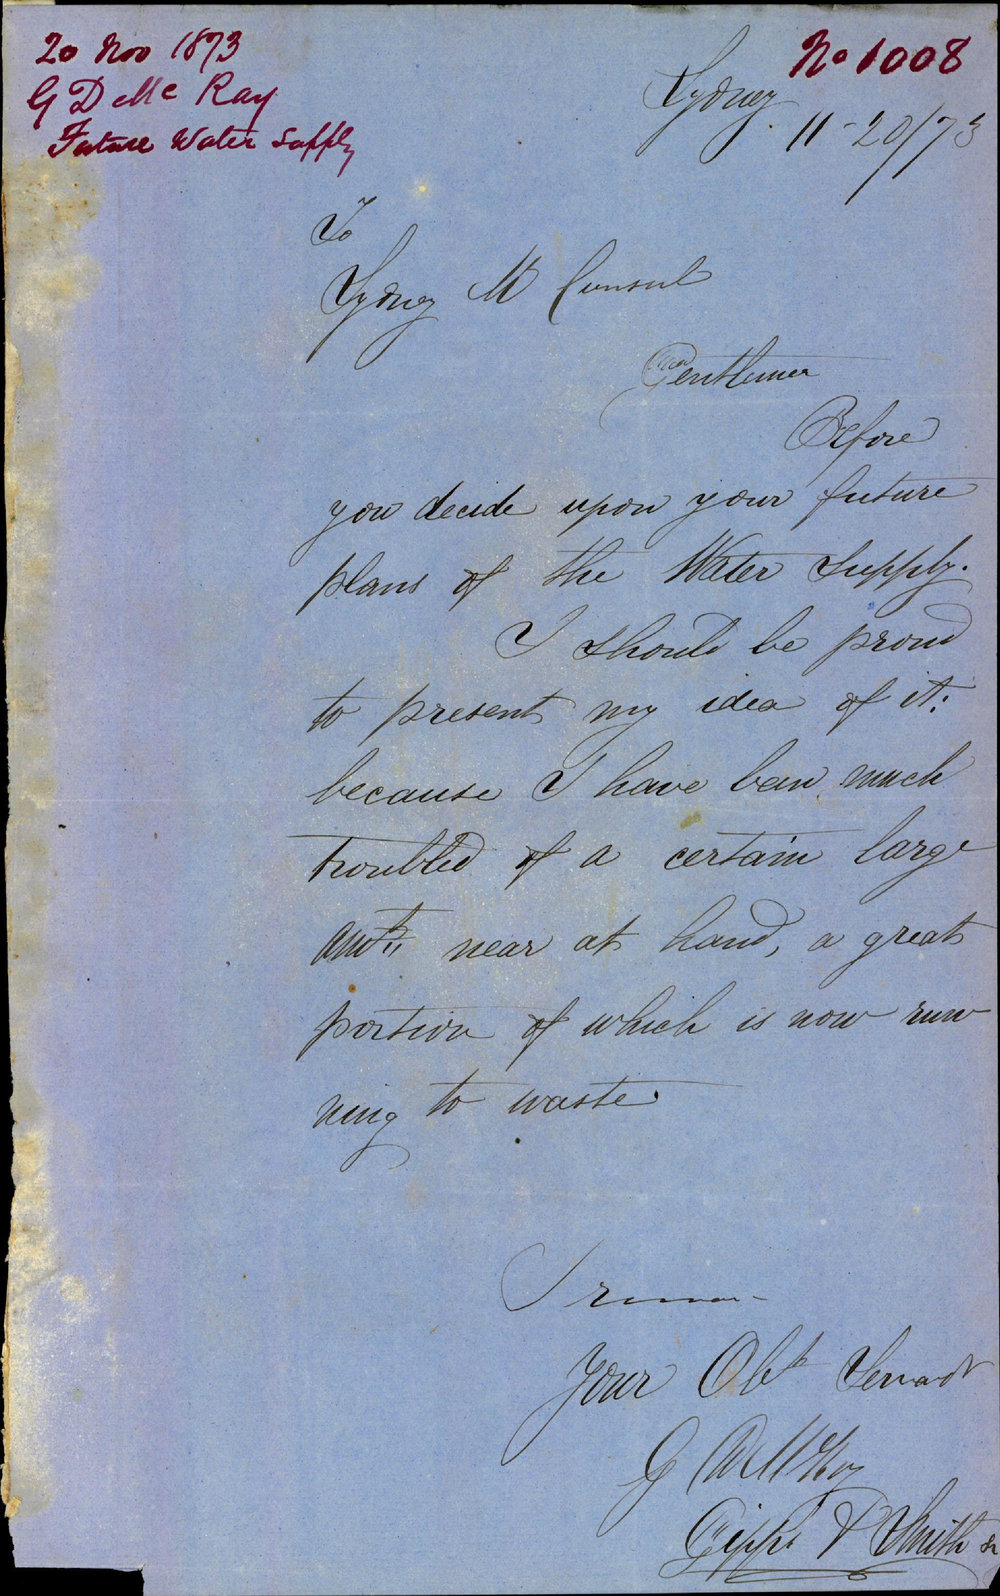 20 Nov 1873
G D Mc Ray
Future Water Supply
No 1008
Sydney
11-20/73
To
Sydney M Counsul
Gentlemen
Before
you decide upon your future
plans of the Water Supply.
I should be proud
to present my idea of it:
because I have been much
troubled of a certain large
amt near at hand, a great
portion of which is now run
ning to waste.
I remain
Your Obt Servant
G D McRay
Gipps & Smith St